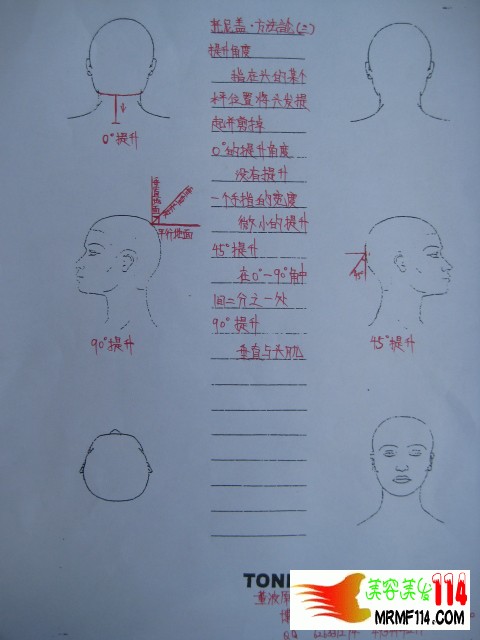 托尼盖·方法论(二)
提升角度
指在头的某个
位置将头发提
起并剪掉
0°的提升角度
没有提升
一个手指的宽度
微小的提升
45°提升
在0°—90°角中
间二分之一处
90°提升
垂直与头肌
0°提升
平行地面
90°提升
45°
45°提升
TONI
美容美发114
MRMF114.COM